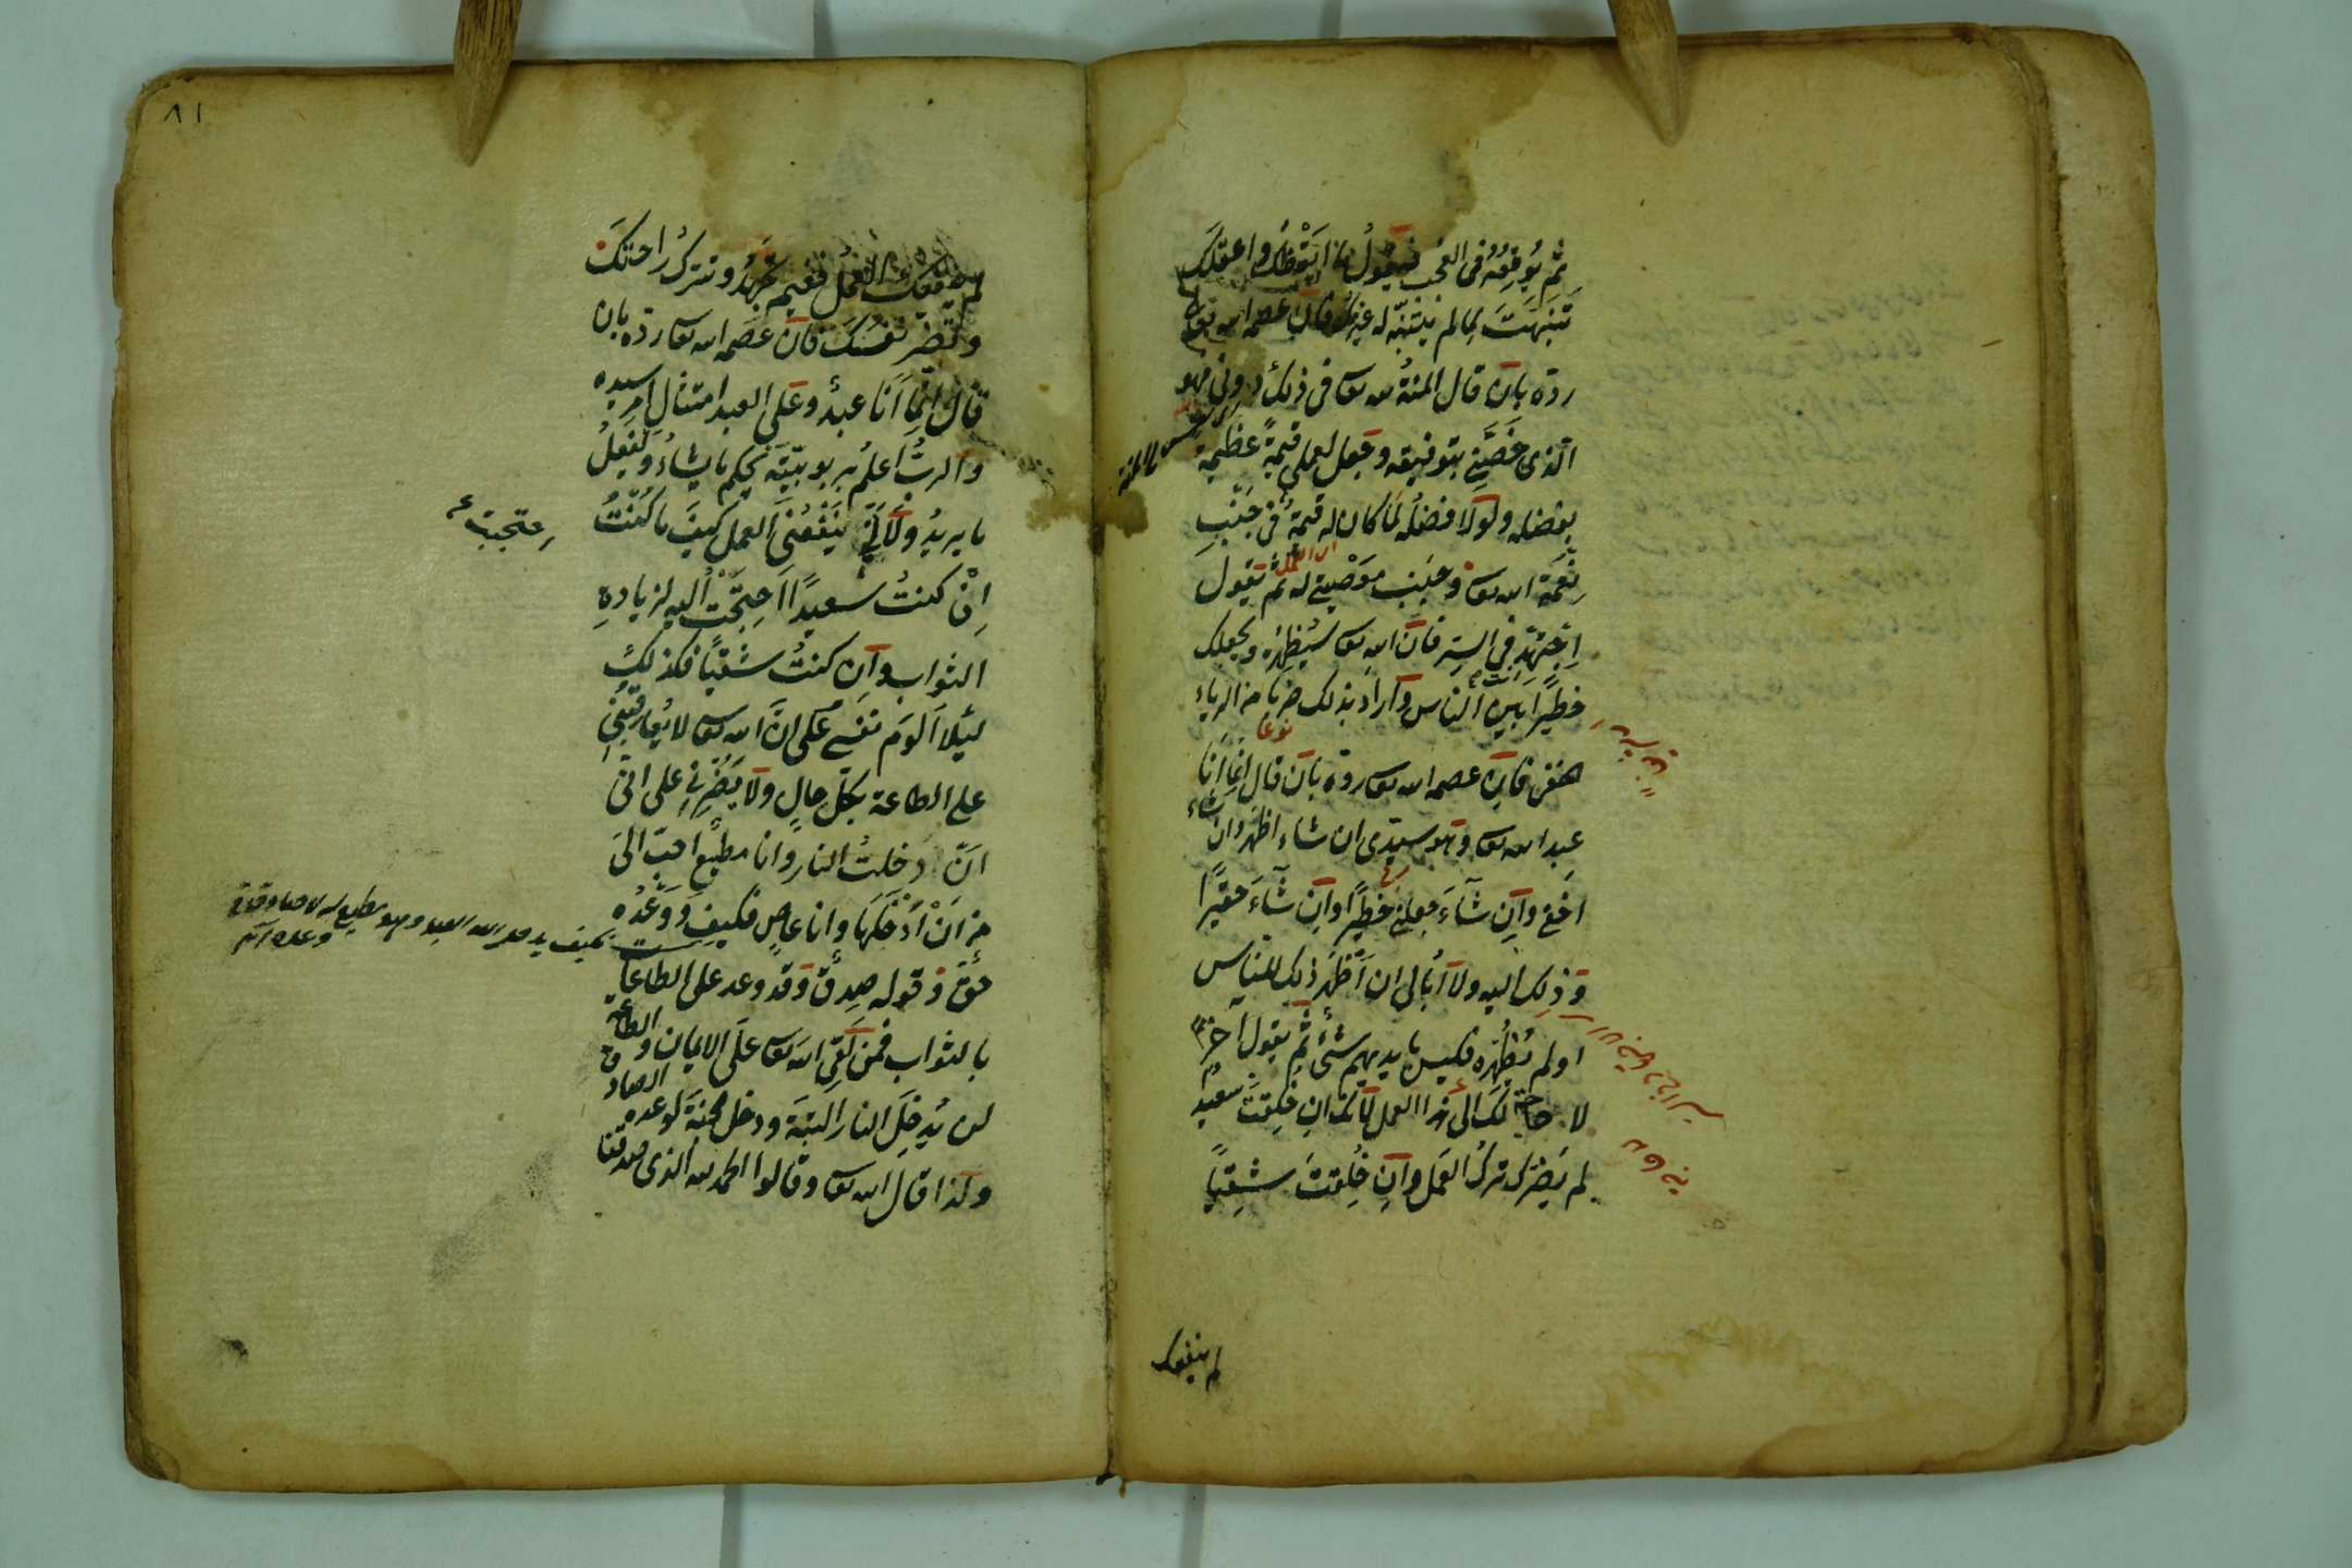 ثم يُوقِعُهُ فى العُجب فيقولُ ما ايقظك واعقلك
تنبهتَ لِمالم يتنبّه له غيرك فان عصمه الله تعالى
ردّه بان قال المنةُ لله تعا فى ذلك دونى فهو
الذى خصّنى بتوفيقه وجعل لعملى قيمةً عظيمة
بفضله ولولا فضلُه لما كان له قيمةٌ فى جنب
نعمة الله تعا وجنب معصيتى له ثم يقول
اجتهد في السر فان الله تعا سيُظهره ويجعلك
خطيرًا بين الناس واراد بذلك ضربا من الرياء
الخفى فان عصمه الله تعا ردّه بان قال انما انا
عبد الله تعا وهو سيدى ان شاء اظهر وان شاء
اخفى وان شآءَ جعلنى خطيرًا وان شآءَ حقيرًا
وذلك اليه ولا اُبالى ان اَظهَر ذلك للناس
اولم يُظهره فليس بايديهم شئٌ ثم يقول آخرًا
لا حاجة لك الى هذا العمل لانك ان خُلقتَ سعيدًا
لم يَضرك تركُ العَمل وان خُلقتَ شقيًّا
لم ينفعك
٨١
لم ينفعك العملُ ففيم تجهدُ وتترك راحتكَ
وتضر نفسَك فان عصَمه الله تعا ردّه بان
قال انما اَنا عبدٌ وعَلى العبد امتثال امر سيده
والربُّ اعلمُ بربوبيّته يحكم ما يشاءُ ويفعلُ
ما يريدُ ولاَنّى ينفعُنى العمل كيفَ ما كُنتُ
اِنْ كنتُ سعيدًا احتجتُ اليه لزيادةِ
الثواب وان كنتُ شقيًّا فكذلك
لِئلا الومَ نفسى على انّ الله تعا لا يُعاقبنى
على الطاعة بكلّ حالٍ ولا يَضُرّنى على انّى
انْ دخلتُ النار وانا مطيع احبّ الىَّ
من اَنْ اَدْخلَها وانا عاصٍ فكيف وَوَعْدُه
حقّ وقوله صِدقٌ وقد وعد على الطاعات
بالثواب فمن لَقى الله تعا علَى الايمان والطاعة
لن يُدخلَ النار البتّةَ ودخل الجنة لوعده الصادق
ولذا قال الله تعا وقالوا الحمد لله الذى صدقنا